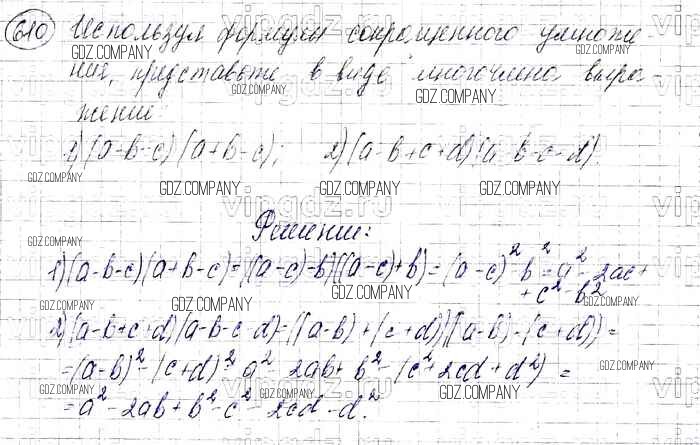 610 Используя формулы сокращенного умноже
ния, представьте в виде многочлена выра-
жение
1) (a-b-c)(a+b-c); 2) (a-b+c+d)(a-b-c-d)
Решение:
1) (a-b-c)(a+b-c)=((a-c)-b)((a-c)+b)=(a-c)²-b²=a²-2ac+
+c²-b²
2) (a-b+c+d)(a-b-c-d)=((a-b)+(c+d))((a-b)-(c+d))=
=(a-b)²-(c+d)²=a²-2ab+b²-(c²+2cd+d²)=
=a²-2ab+b²-c²-2cd-d².
GDZ.COMPANY
vipgdz.ru